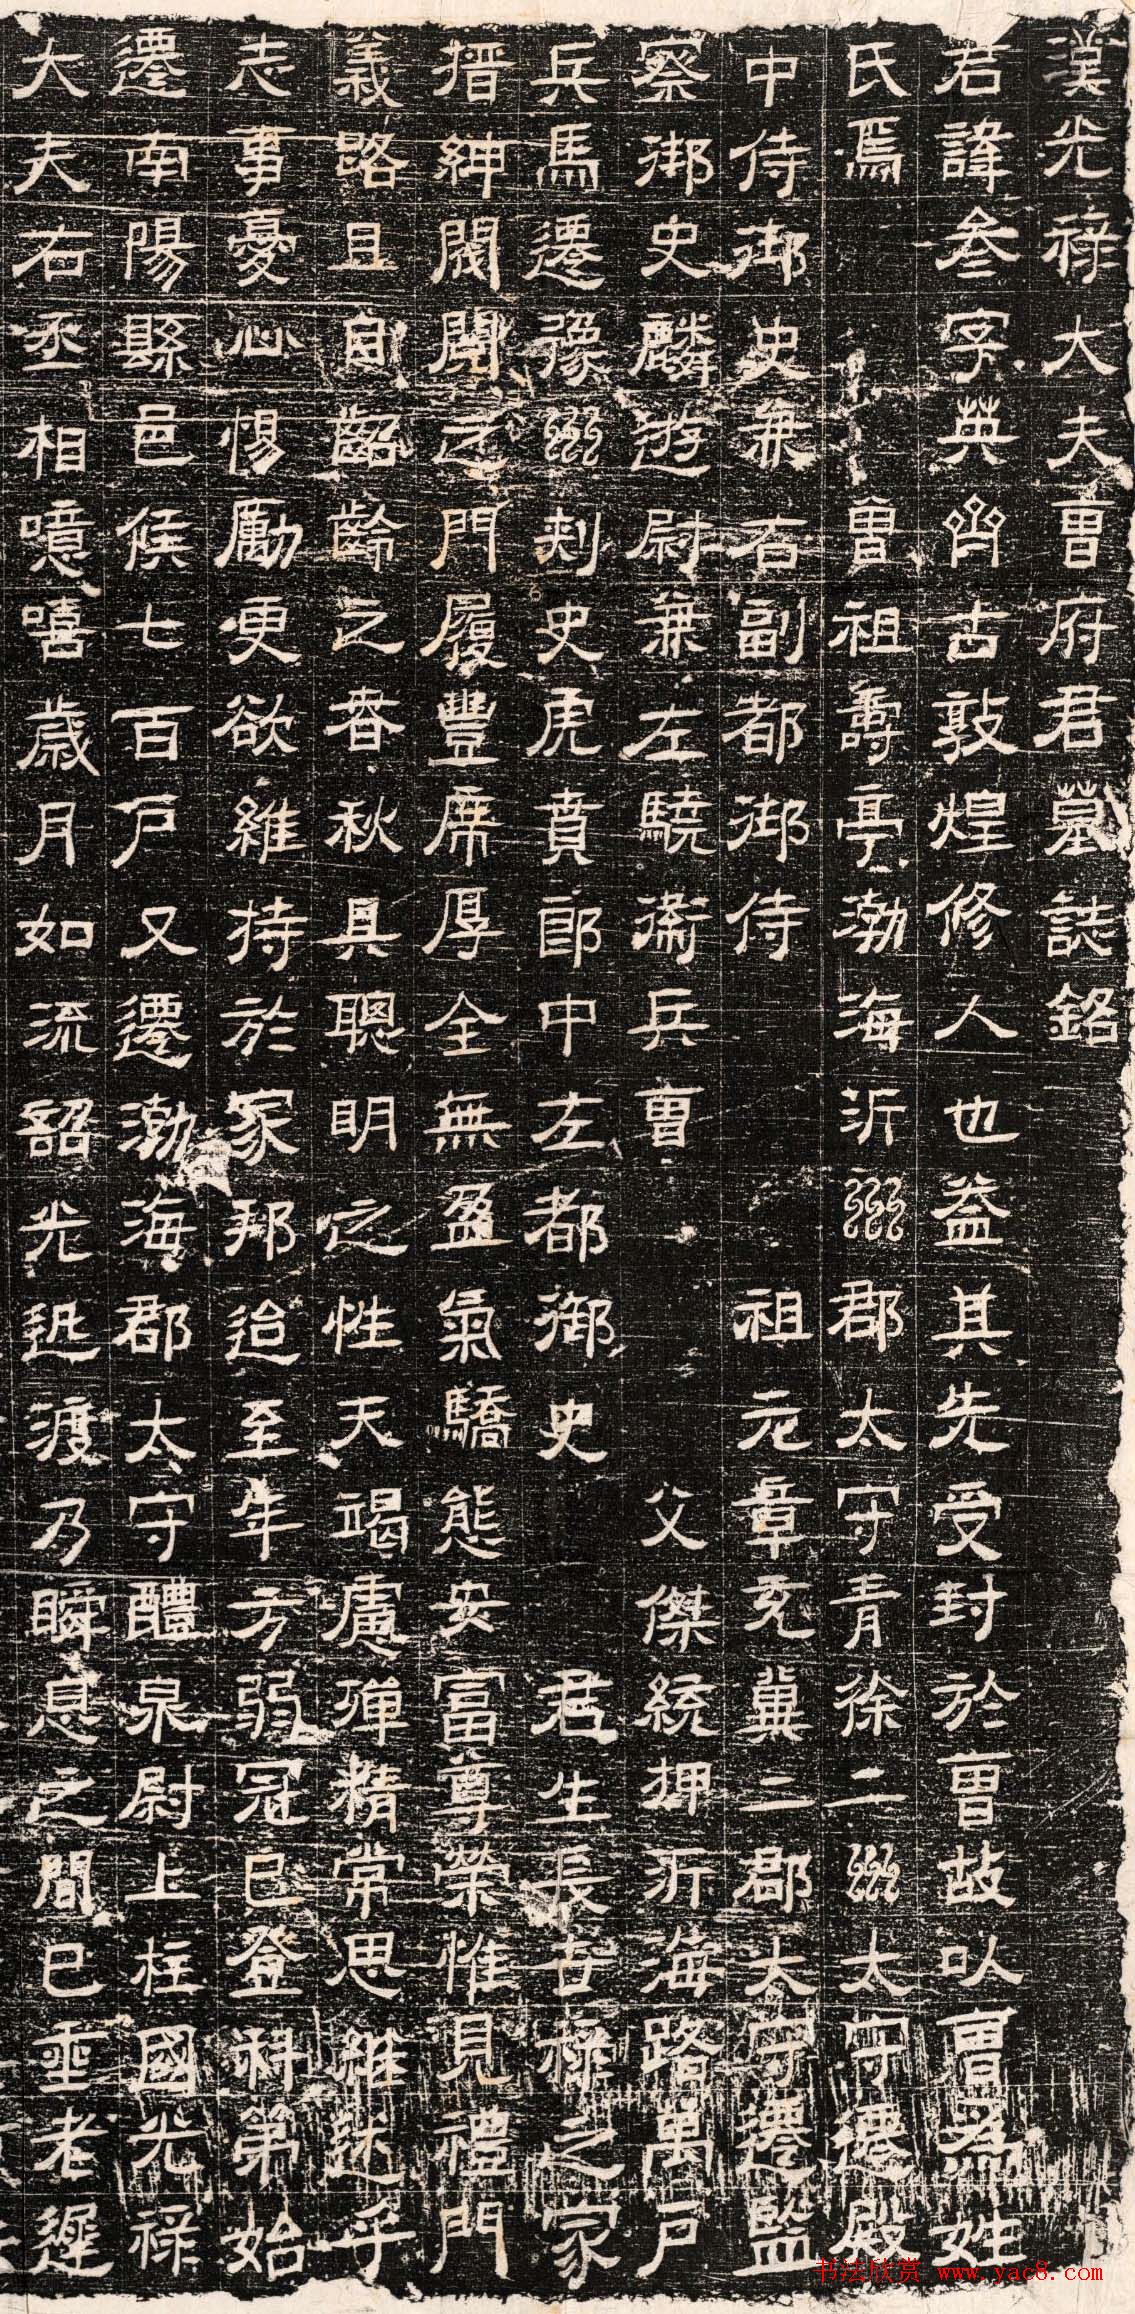 漢光祿大夫曹府君墓誌銘
君諱參字英齊古敦煌修人也益其先受封於曹故以曹為姓
氏焉 曾祖壽亭渤海沂州郡太守青徐二州太守遷殿
中侍御史兼右副都御侍 祖元章兗冀二郡太守遷監
察御史麟遊尉兼左驍衛兵曹 父傑統押沂海路萬戶
兵馬遷豫州刺史虎賁郎中左都御史 君生長世祿之家
搢紳閥閱之門履豐席厚全無盈氣驕態安富尊榮惟見禮門
義路且自齠齡之春秋具聰明之性天竭慮殫精常思繼述乎
志事憂心惕勵更欲維持於家邦迨至年方弱冠已登科第始
遷南陽縣邑侯七百戶又遷渤海郡太守醴泉尉上柱國光祿
大夫右丞相噫嘻歲月如流韶光迅渡乃瞬息之間已垂老遲
书法欣赏 www.yac8.com